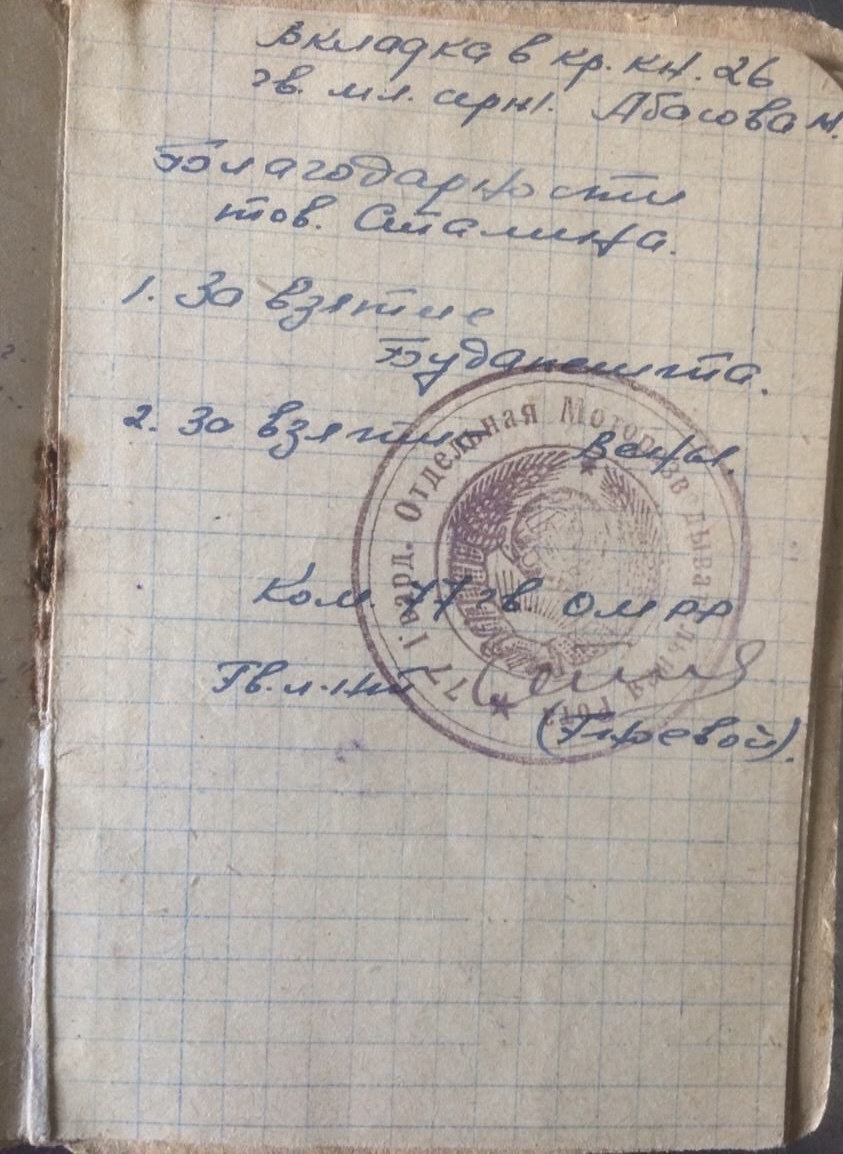 Вкладка в кр. кн. 26
гв. мл. серж. Абасова М.
Благодарности
тов. Сталина.
1. За взятие
Будапешта.
2. За взятие Вены.
Ком. 77 гв ОМРР
Гв. л-нт
77 Гвард. Отдельная Моторазведывательная Рота